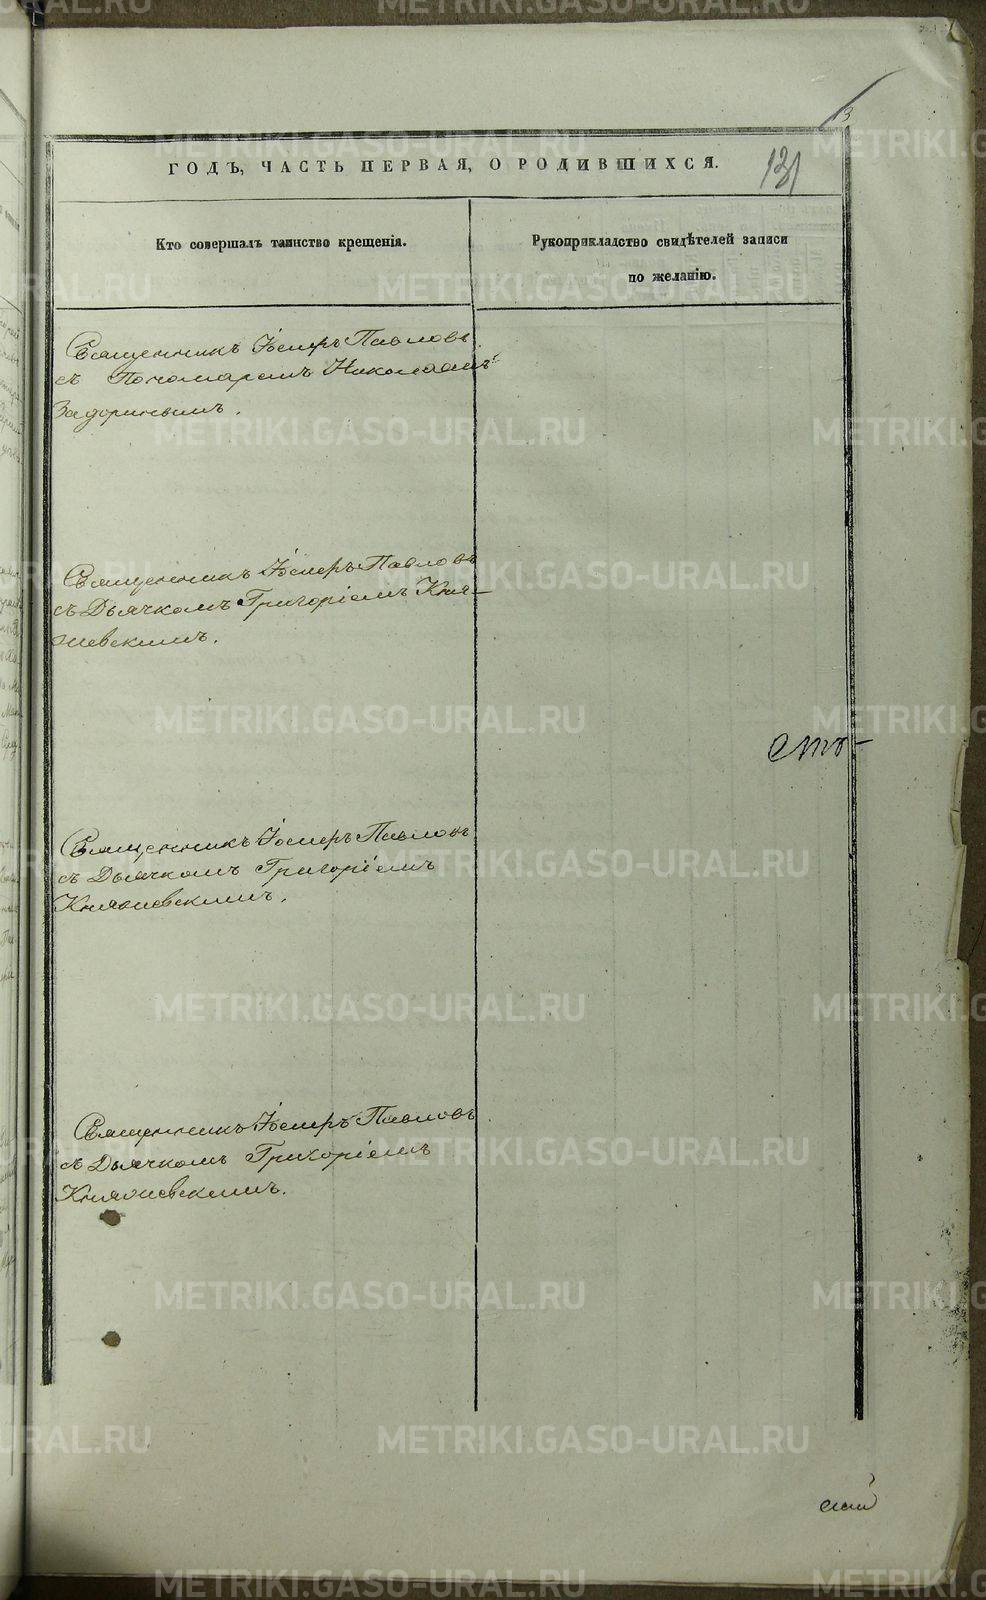 3
131
ГОДЪ, ЧАСТЬ ПЕРВАЯ, О РОДИВШИХСЯ.
Кто совершалъ таинство крещенія.
Рукоприкладство свидѣтелей записи
по желанію.
Священникъ Іосифъ Павловъ
съ Пономаремъ Николаемъ
Задоринымъ.
Священникъ Іосифъ Павловъ
съ Дьячкомъ Григоріемъ Кня-
жевскимъ.
сто-
Священникъ Іосифъ Павловъ
съ Дьячкомъ Григоріемъ
Княжевскимъ.
Священникъ Іосифъ Павловъ
съ Дьячкомъ Григоріемъ
Княжевскимъ.
METRIKI.GASO-URAL.RU